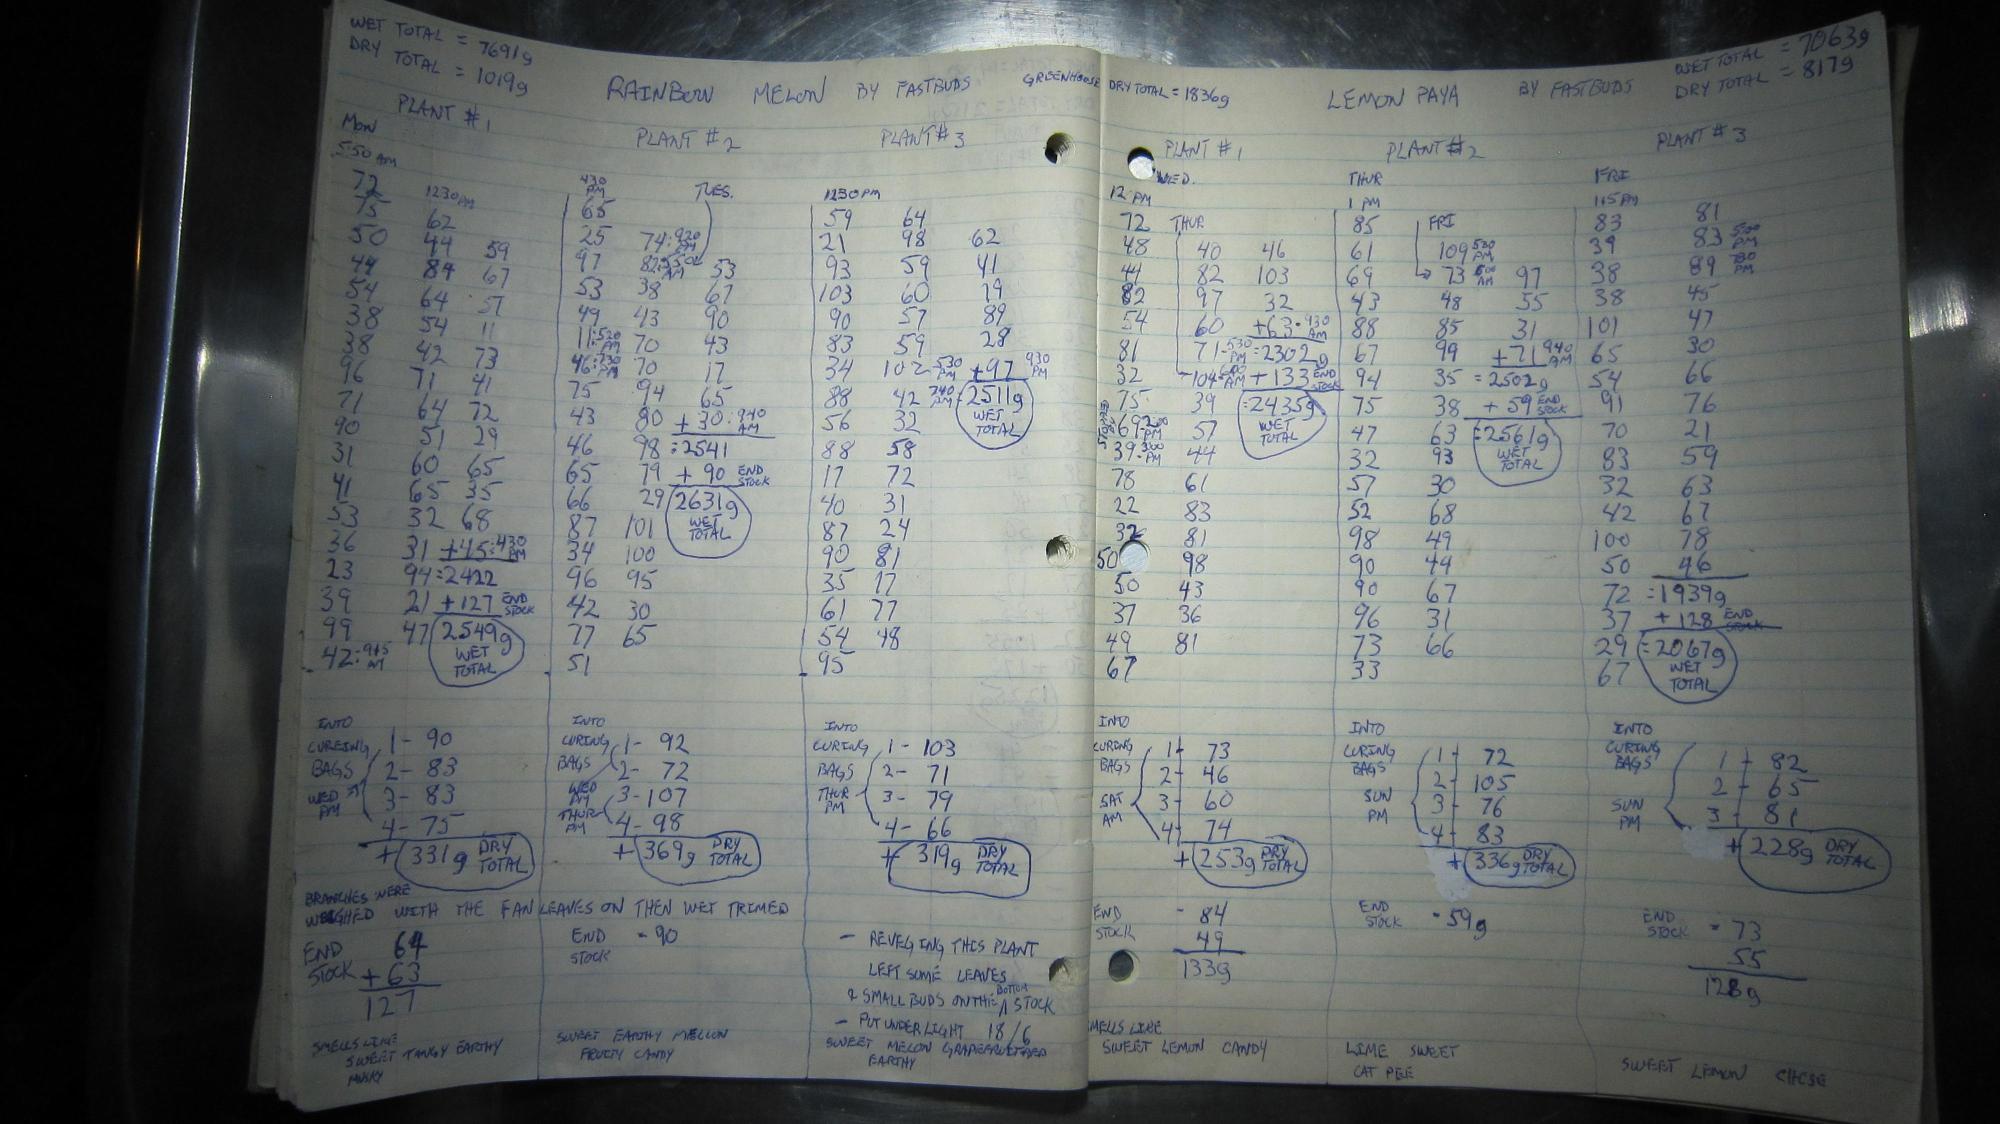 WET TOTAL = 7691g
DRY TOTAL = 1019g
RAINBOW MELON BY FASTBUDS
GREENHOUSE DRY TOTAL = 1836g
LEMON PAYA BY FASTBUDS
WET TOTAL = 7063g
DRY TOTAL = 817g
PLANT #1
MON
5:50 AM
72
75
50
44
54
38
38
96
71
90
31
41
53
36
23
39
99
42:945 AM
1230PM
62
44 59
84 67
64 57
54 11
42 73
71 41
64 72
51 29
60 65
65 35
32 68
31 +45:430 PM
94 =2422
21 +127 END STOCK
47 2549g
WET
TOTAL
INTO
CUREING
BAGS
WED
PM
1- 90
2- 83
3- 83
4- 75
+ 331g DRY TOTAL
BRANCHES WERE
WEIGHED WITH THE FAN LEAVES ON THEN WET TRIMED
END 64
STOCK +63
127
SMELLS LIKE
SWEET TANGY EARTHY
MUSKY
PLANT #2
430
PM
65
25
97
53
49
11:520 PM
46:730 PM
75
43
46
65
66
87
34
96
42
77
51
TUES.
74:920 PM
82:550 AM 53
38 67
43 90
70 43
70 17
94 65
80 +30:940 AM
98 =2541
79 +90 END STOCK
29 2631g
WET
TOTAL
101
100
95
30
65
INTO
CURING
BAGS
WED
PM
THUR
PM
1- 92
2- 72
3- 107
4- 98
+ 369g DRY TOTAL
END STOCK - 90
SWEET EARTHY MELLON
FRUITY CANDY
PLANT #3
1230PM
59 64
21 98 62
93 59 41
103 60 79
90 57 89
83 59 28
34 102-530 PM +97 930 PM
88 42 740 PM 2511g
56 32 WET
88 58 TOTAL
17 72
40 31
87 24
90 81
35 17
61 77
54 48
95
INTO
CURING
BAGS
THUR
PM
1- 103
2- 71
3- 79
4- 66
+ 319g DRY TOTAL
- REVEGING THIS PLANT
LEFT SOME LEAVES
& SMALL BUDS ON THE BOTTOM STOCK
- PUT UNDER LIGHT 18/6
SWEET MELON
EARTHY
PLANT #1
WED.
12:PM
72
48
44
82
54
81
32
75
69-200 PM
39-300 PM
78
22
32
50
50
37
49
67
THUR
40 46
82 103
97 32
60 +63-430 AM
71-530 PM =2302g
104 AM +133 END STOCK
39 =2435g
57 WET
44 TOTAL
61
83
81
98
43
36
81
INTO
CURING
BAGS
SAT
AM
1- 73
2- 46
3- 60
4- 74
+ 253g DRY TOTAL
END STOCK - 84
49
133g
SMELLS LIKE
SWEET LEMON CANDY
PLANT #2
THUR
1 PM
85
61
69
43
88
67
94
75
47
32
57
52
98
90
90
96
73
33
FRI
109 530 PM
73 AM 97
48 55
85 31
99 +71 940 AM
35 =2502g
38 +59 END STOCK
63 =2561g
93 WET
30 TOTAL
68
49
44
67
31
66
INTO
CURING
BAGS
SUN
PM
1- 72
2- 105
3- 76
4- 83
+ 336g DRY TOTAL
END STOCK - 59g
LIME SWEET
CAT PEE
PLANT #3
FRI
115PM
83
39
38
38
101
65
54
91
70
83
32
42
100
50
72
37
29
67
81
83 PM
89 PM
45
47
30
66
76
21
59
63
67
78
46
=1939g
+128 END STOCK
=2067g
WET
TOTAL
INTO
CURING
BAGS
SUN
PM
1- 82
2- 65
3- 81
+ 228g DRY TOTAL
END STOCK - 73
55
128g
SWEET LEMON